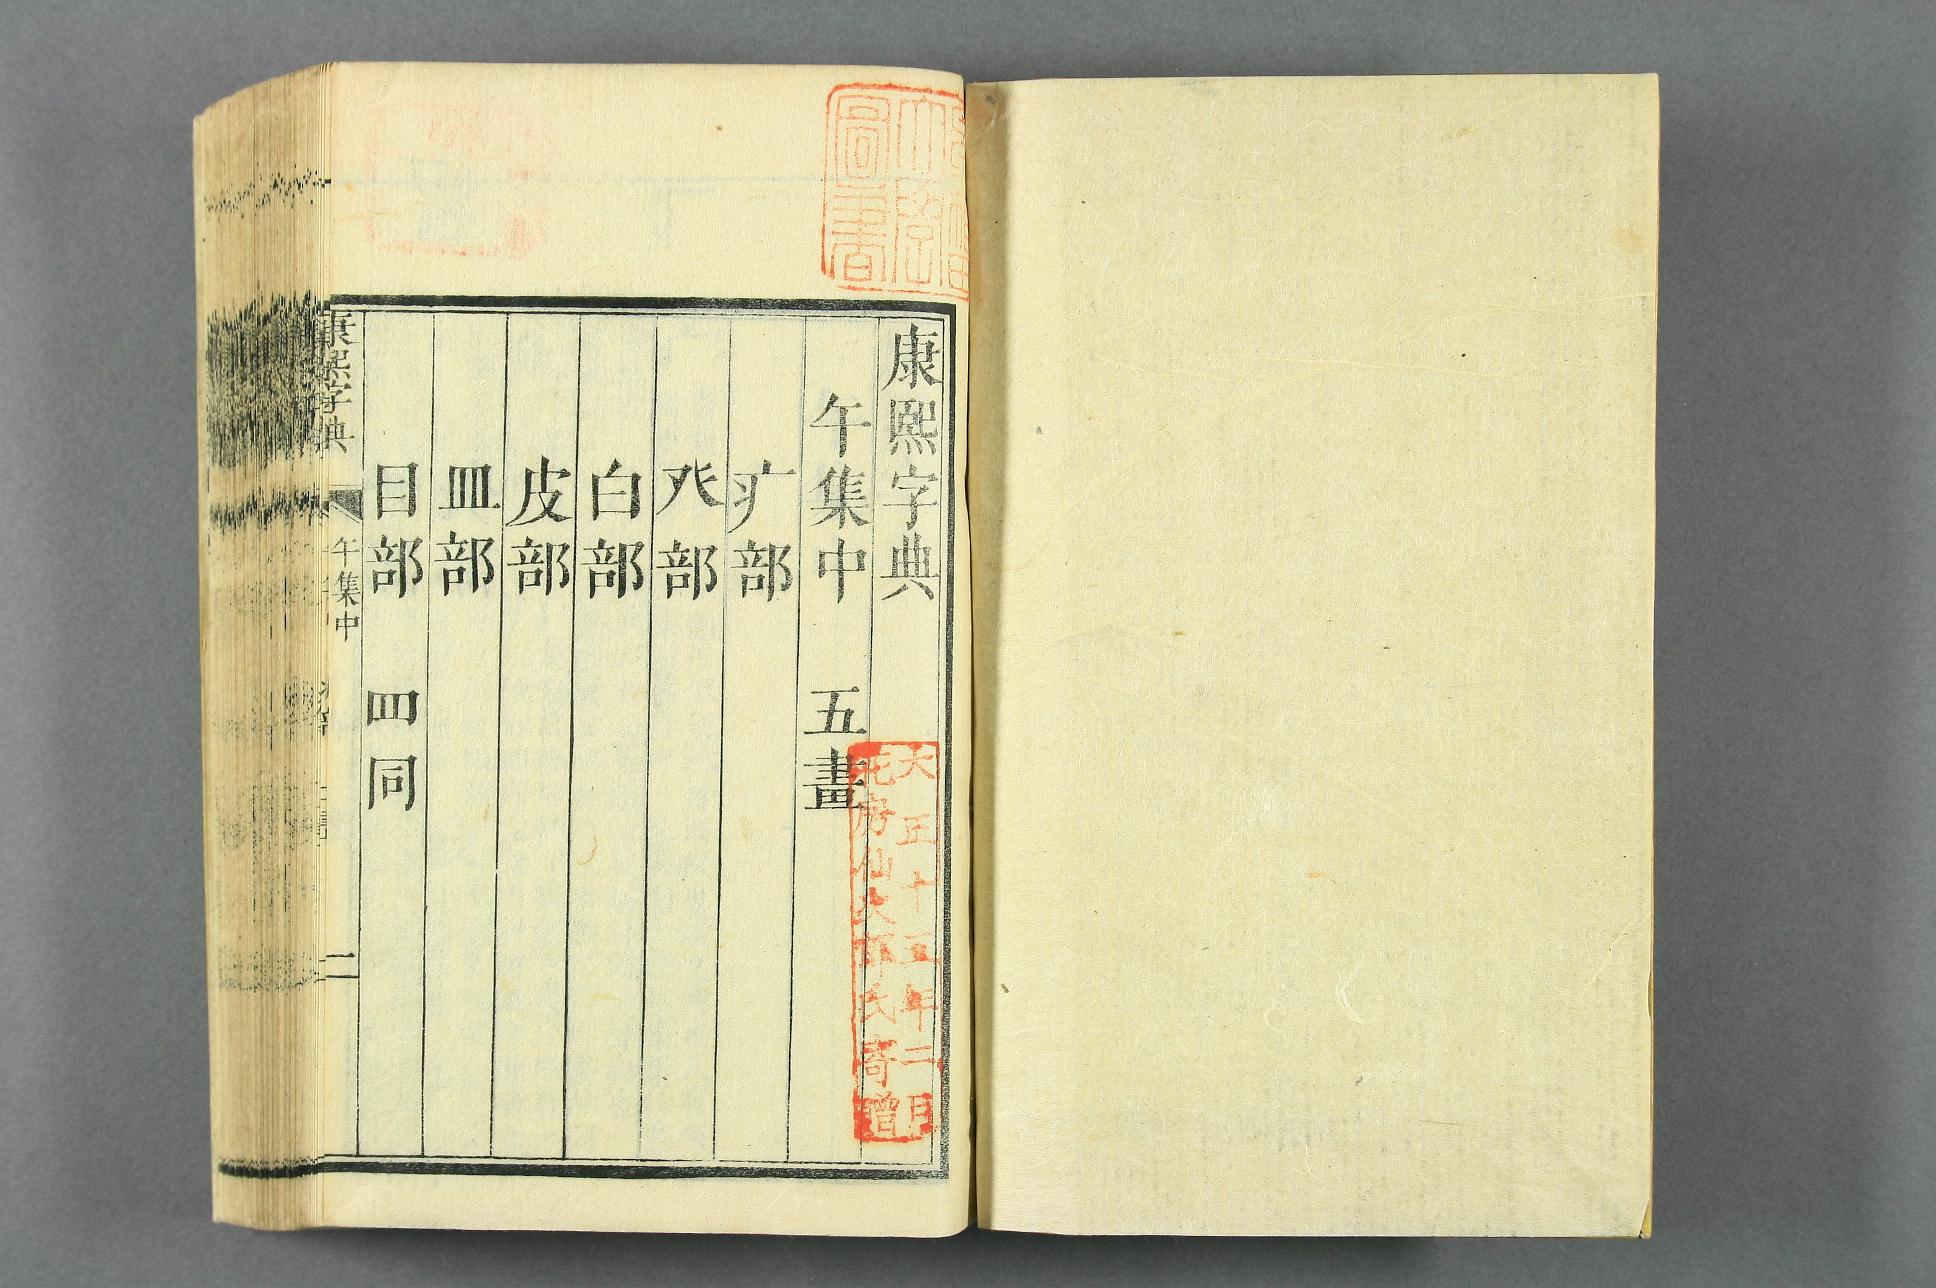 康熙字典
午集中 五畫
疒部
癶部
白部
皮部
皿部
目部 罒同
康熙字典 午集中 二
大正十五年二月
花房仙次郎氏寄贈
圖書